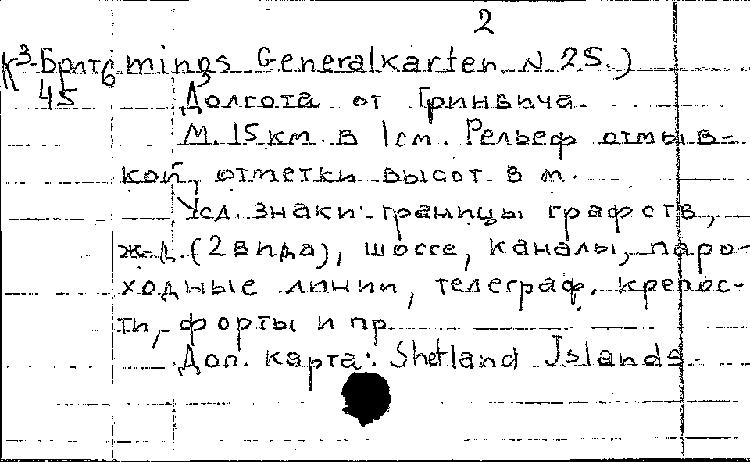 2
К³-Брит6 mings Generalkarten N 25.)
45 Долгота от Гринвича.
М. 15 км в 1 см. Рельеф отмыв-
кой, отметки высот в м.
Усл. знаки: границы графств,
ж.д. (2 вида), шоссе, каналы, паро-
ходные линии, телеграф, крепос-
ти, форты и пр.
Доп. карта: Shetland Jslands.